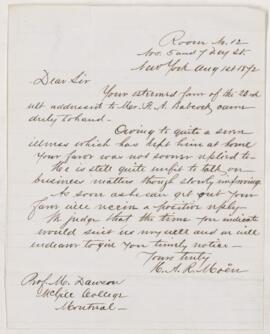 Room No. 12
Nos. 5 and 7 Dey St.
New York Aug 1st 1872
Dear Sir
Your esteemed favor of the 22d
ult addressed to Mr. F. A. Babcock came
duly to hand.
Owing to quite a serious
illness which has kept him at home
Your favor was not sooner replied to.
He is still quite unfit to talk on
business matters though slowly improving.
As soon as he can get out your
favor will receive a positive reply
I judge that the time you indicate
would suit us very well and we will
endeavor to give you timely notice.
Yours truly
A. R. Moën
Prof. M. Dawson
McGill College
Montreal